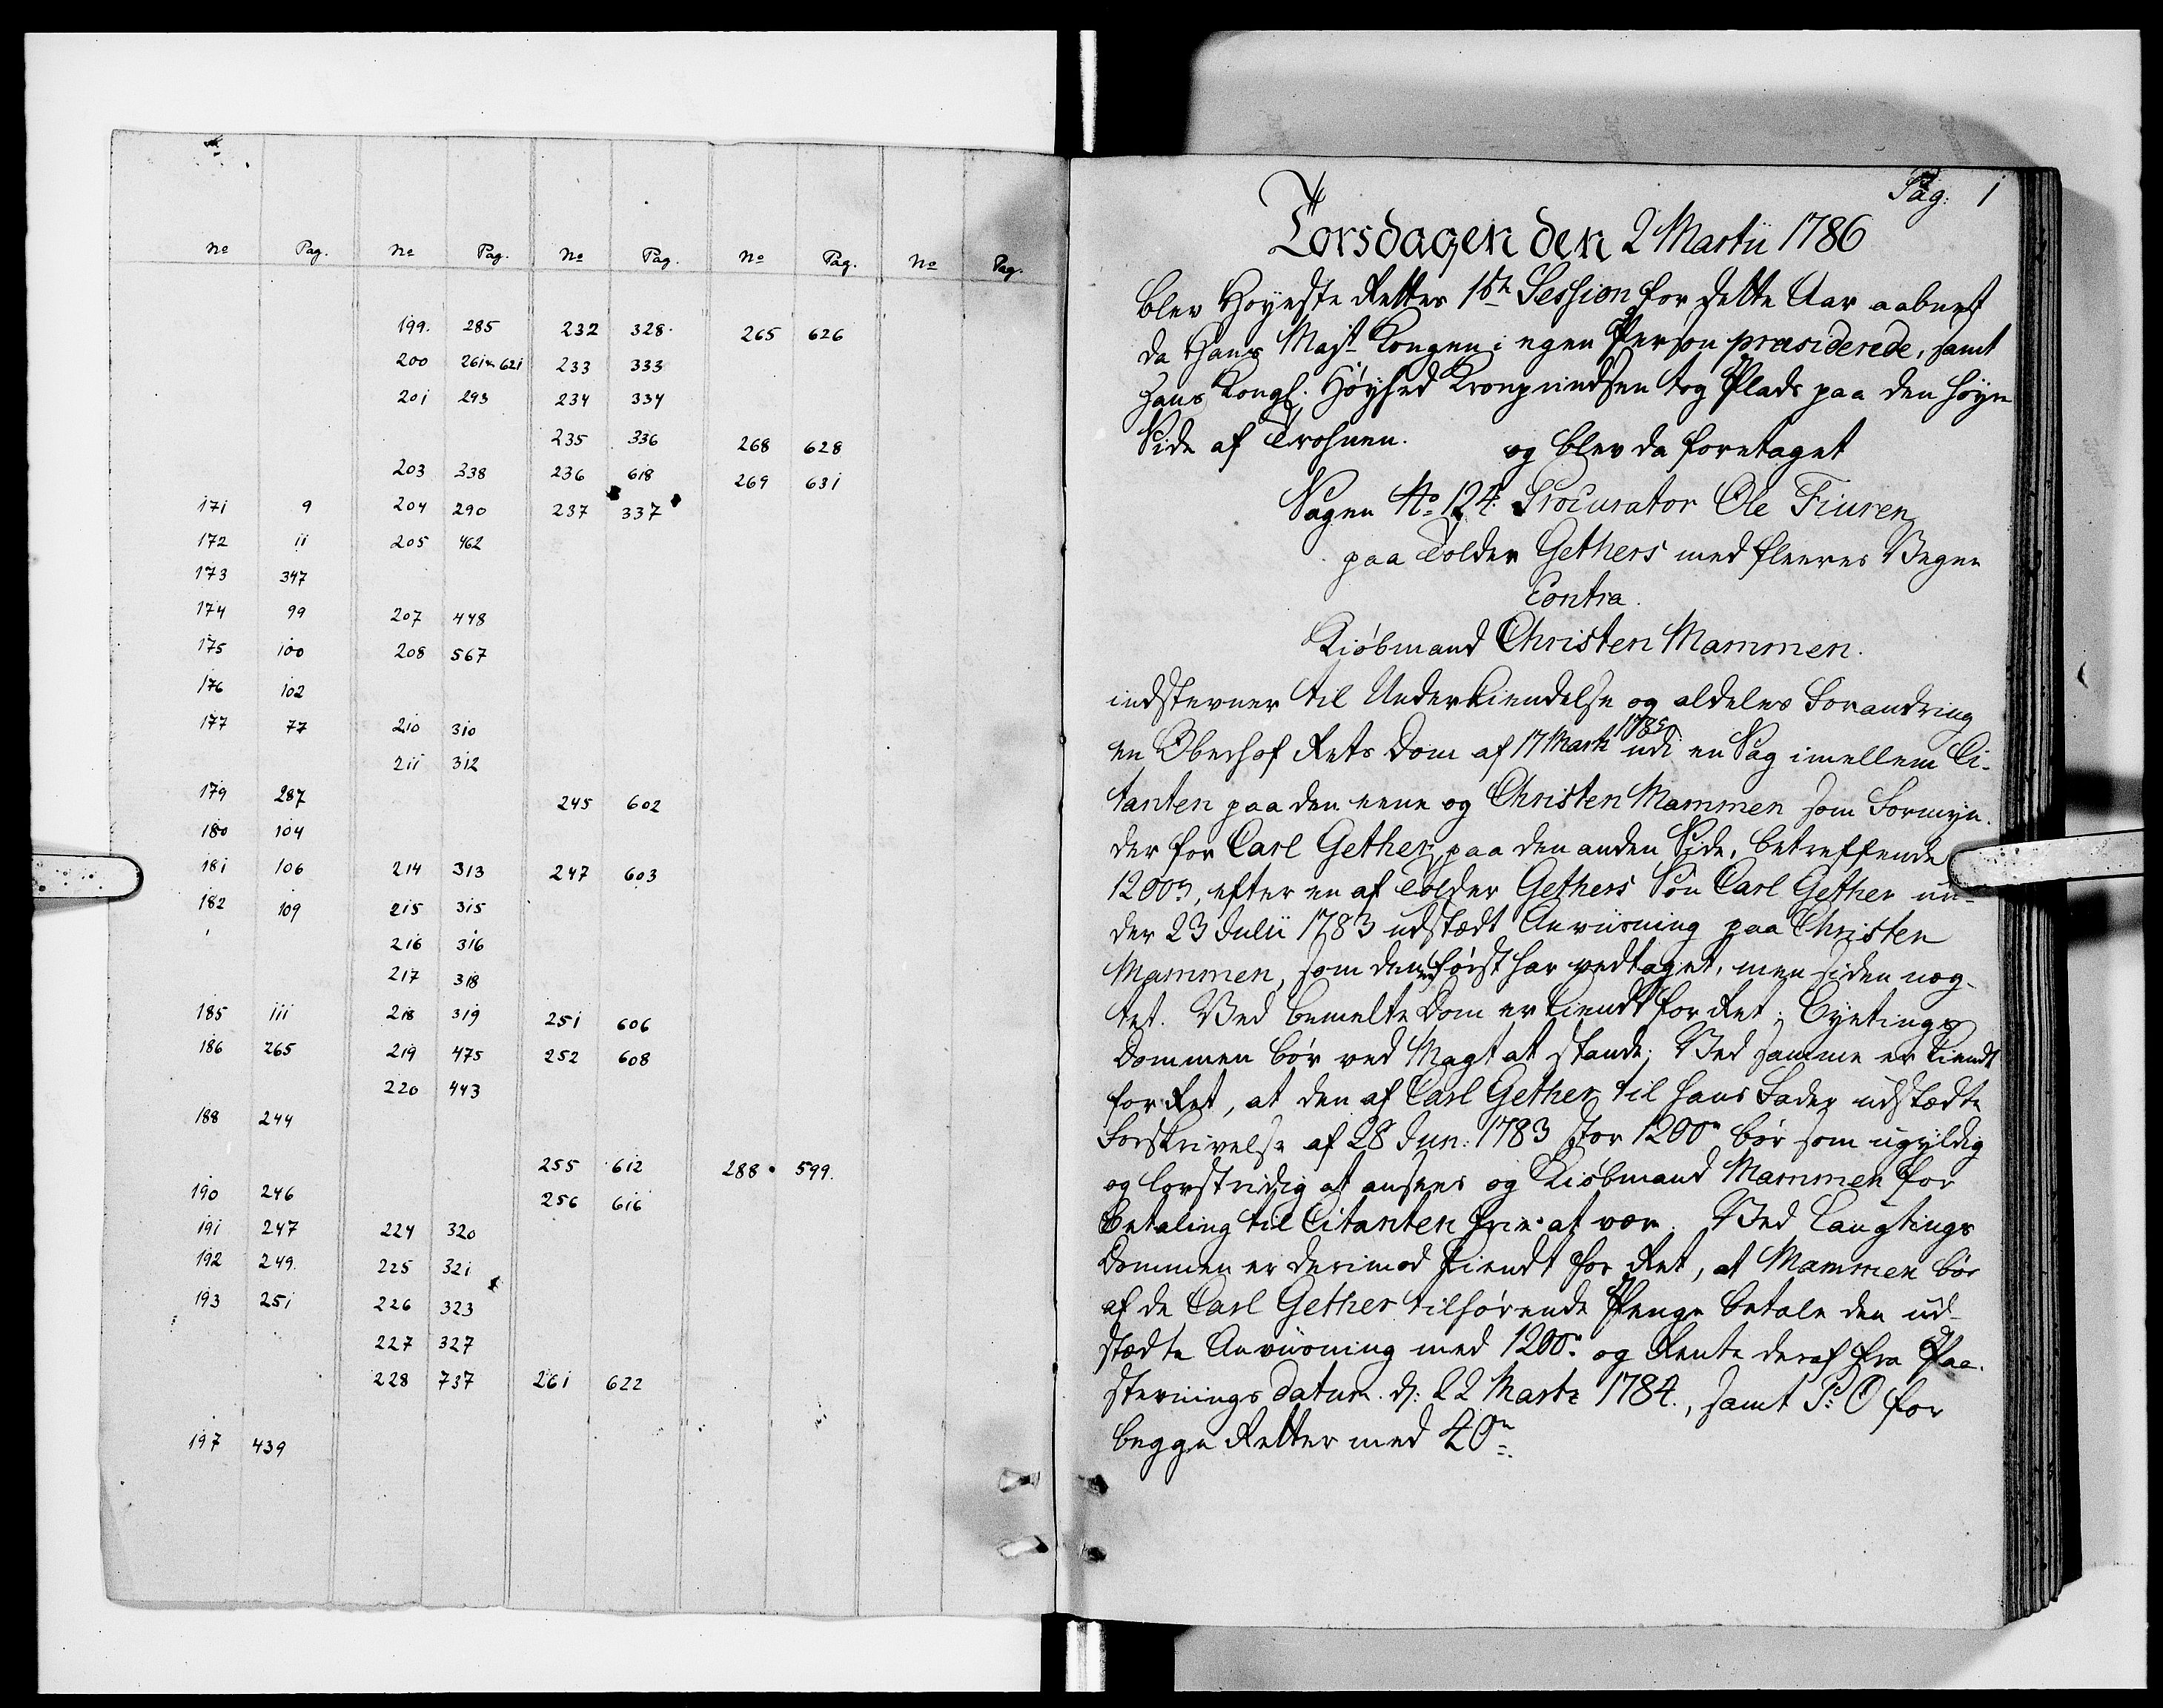 No Pag. No Pag. No Pag. No Pag. No Pag.
199. 285 232 328. 265 626
200 261 & 621 233 333
201 293 234 334
235 336 268 628
203 338 236 618 269 631
171 9 204 290 237 337
172 11 205 462
173 347
174 99 207 448
175 100 208 567
176 102
177 77 210 310
211 312
179 287 245 602
180 104
181 106 214 313 247 603
182 109 215 315
216 316
217 318
185 111 218 319 251 606
186 265 219 475 252 608
220 443
188 244
255 612 288 599.
190 246 256 616
191 247 224 320
192 249. 225 321
193 251 226 323
227 327
228 737 261 622
197 439
Pag. 1
Torsdagen den 2 Martii 1786
blev Høyeste Rettes 1ste Session for dette Aar aabnet
da Hans Majt Kongen i egen Person præsiderede, samt
Hans Kongl. Høyhed Kronprindsen tog Plads paa den høyre
Side af Trohnen. og blev da foretaget
Sagen No 124. Procurator Ole Fiuren
paa Tolder Gethers med fleeres Vegne
Contra.
Kiøbmand Christen Mammen.
indstevner til Underkiendelse og aldeles Forandring
en Oberhof Rets Dom af 17 Martii 1785 udi en Sag imellem Ci-
tanten paa den eene og Christen Mammen som Formyn-
der for Carl Gether, paa den anden Side, betreffende
1200, efter en af Tolder Gethers Søn Carl Gether un-
der 23 Julii 1783 udstædt Anviisning paa Christen
Mammen, som denne først har vedtaget, men siden næg-
tet. Ved bemelte Dom er kiendt for Ret: Byetings
Dommen bør ved Magt at stande; Ved samme er kiendt
for Ret, at den af Carl Gether til hans Fader udstædte
Forskrivelse af 28 Jun: 1783 stor 1200 bør som ugyldig
og lovstridig at ansees og Kiøbmand Mammen for
Betaling til Citanten frie at være. Ved Laugtings
Dommen er derimod kiendt for Ret, at Mammen bør
af de Carl Gether tilhørende Penge betale den ud-
stædte Anviisning med 1200 og Rente deraf fra Paa-
stevnings datum d: 22 Martz 1784., samt P: O for
begge Retter med 40